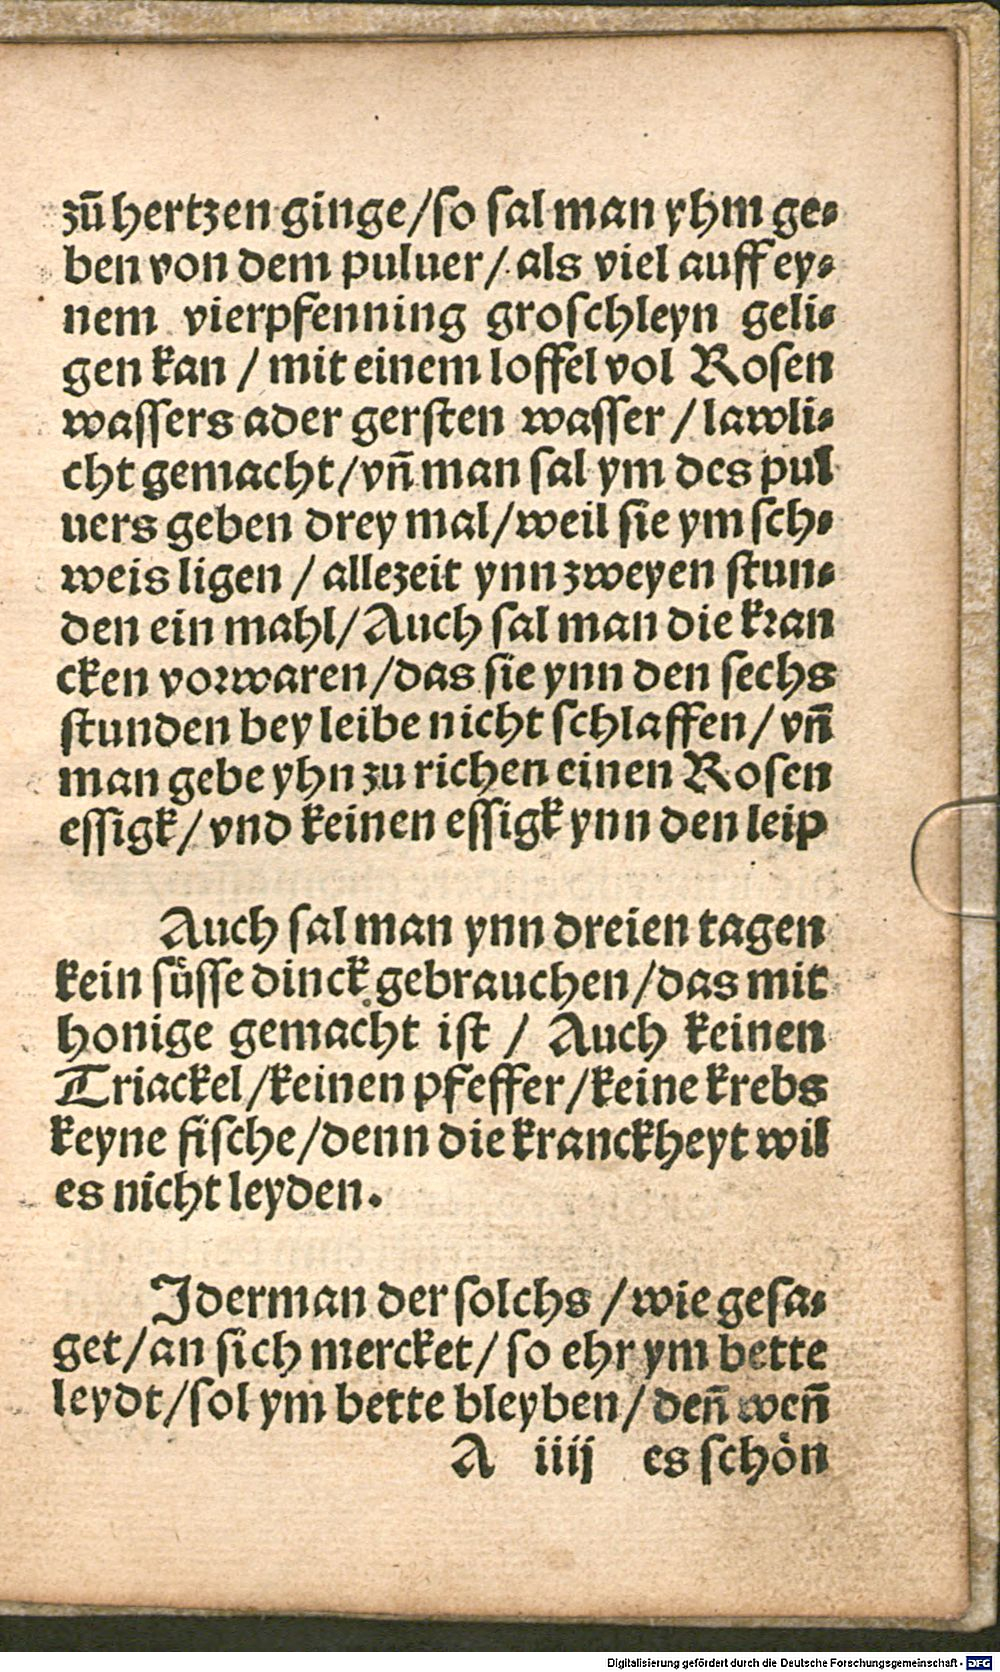 zū hertzen ginge/so sal man yhm ge⸗
ben von dem puluer/ als viel auff ey⸗
nem vierpfenning groschleyn geli⸗
gen kan / mit einem loffel vol Rosen
wassers ader gersten wasser / lawli⸗
cht gemacht/vn̄ man sal ym des pul
uers geben drey mal/weil sie ym sch⸗
weis ligen / allezeit ynn zweyen stun⸗
den ein mahl/Auch sal man die kran
cken vorwaren/das sie ynn den sechs
stunden bey leibe nicht schlaffen/ vn̄
man gebe yhn zu richen einen Rosen
essigk/ vnd keinen essigk ynn den leip
Auch sal man ynn dreien tagen
kein süsse dinck gebrauchen/das mit
honige gemacht ist / Auch keinen
Triackel/keinen pfeffer/keine krebs
keyne fische/denn die kranckheyt wil
es nicht leyden.
Jderman der solchs /wie gesa⸗
get/an sich mercket/ so ehr ym bette
leydt/sol ym bette bleyben/ den̄ wen̄
A iiij es schön
Digitalisierung gefördert durch die Deutsche Forschungsgemeinschaft - DFG